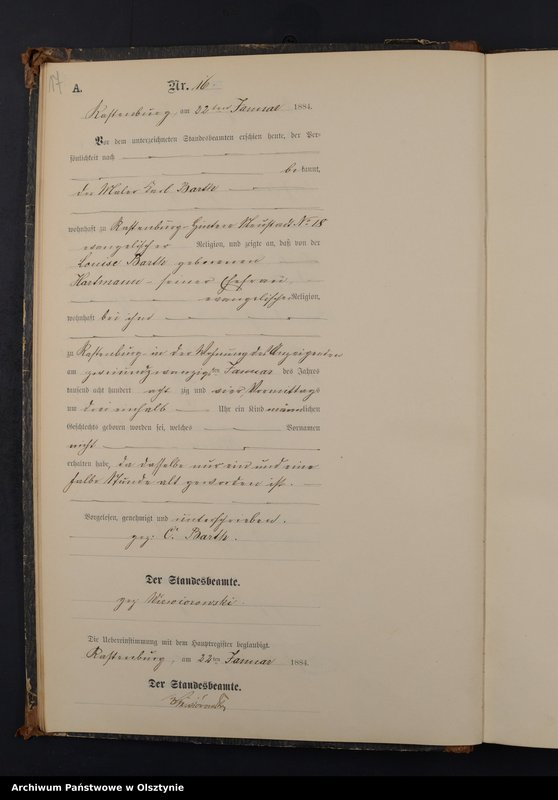 17
A.
Nr. 16
Rastenburg, am 22ten Januar 1884.
Vor dem unterzeichneten Standesbeamten erschien heute, der Per-
sönlichkeit nach
bekannt,
der Maler Carl Barth
wohnhaft zu Rastenburg Neustadt No 18
evangelischer Religion, und zeigte an, daß von der
Louise Barth geborenen
Hartmann – seiner Ehefrau
evangelischer Religion,
wohnhaft bei ihm
zu Rastenburg in der Wohnung des Anzeigenden
am zweiundzwanzigsten Januar des Jahres
tausend acht hundert acht zig und vier Vormittags
um drei einhalb Uhr ein Kind männlichen
Geschlechts geboren worden sei, welches Vornamen
nicht
erhalten habe, da dasselbe nur ein und eine
halbe Stunde alt geworden ist.
Vorgelesen, genehmigt und unterschrieben.
gez. C. Barth.
Der Standesbeamte.
gez Wiewiorowski.
Die Uebereinstimmung mit dem Hauptregister beglaubigt.
Rastenburg, am 22ten Januar 1884.
Der Standesbeamte.
Wiewiorowski
Archiwum Państwowe w Olsztynie